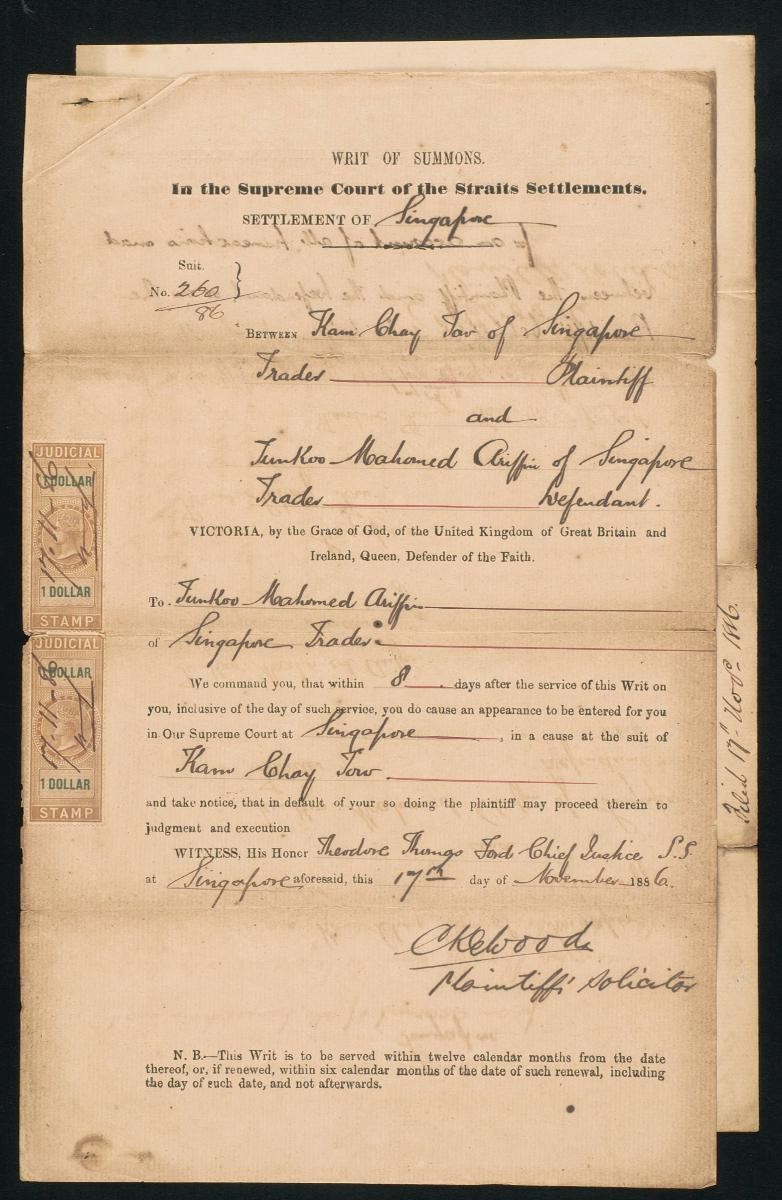 WRIT OF SUMMONS.
In the Supreme Court of the Straits Settlements.
SETTLEMENT OF Singapore
Suit.
No. 260
86
BETWEEN Kam Chay Tow of Singapore
Trader Plaintiff
and
Tunkoo Mahomed Ariffin of Singapore
Trader Defendant.
VICTORIA, by the Grace of God, of the United Kingdom of Great Britain and
Ireland, Queen, Defender of the Faith.
To Tunkoo Mahomed Ariffin
of Singapore Trader
We command you, that within 8 days after the service of this Writ on
you, inclusive of the day of such service, you do cause an appearance to be entered for you
in Our Supreme Court at Singapore, in a cause at the suit of
Kam Chay Tow
and take notice, that in default of your so doing the plaintiff may proceed therein to
judgment and execution
WITNESS, His Honor Theodore Thomas Ford Chief Justice S.S.
at Singapore aforesaid, this 17th day of November 1886.
Plaintiffs' Solicitor
N. B.—This Writ is to be served within twelve calendar months from the date
thereof, or, if renewed, within six calendar months of the date of such renewal, including
the day of such date, and not afterwards.
JUDICIAL
1 DOLLAR
17-11-86
1 DOLLAR
STAMP
JUDICIAL
1 DOLLAR
17-11-86
1 DOLLAR
STAMP
Filed 17th Novr 1886.